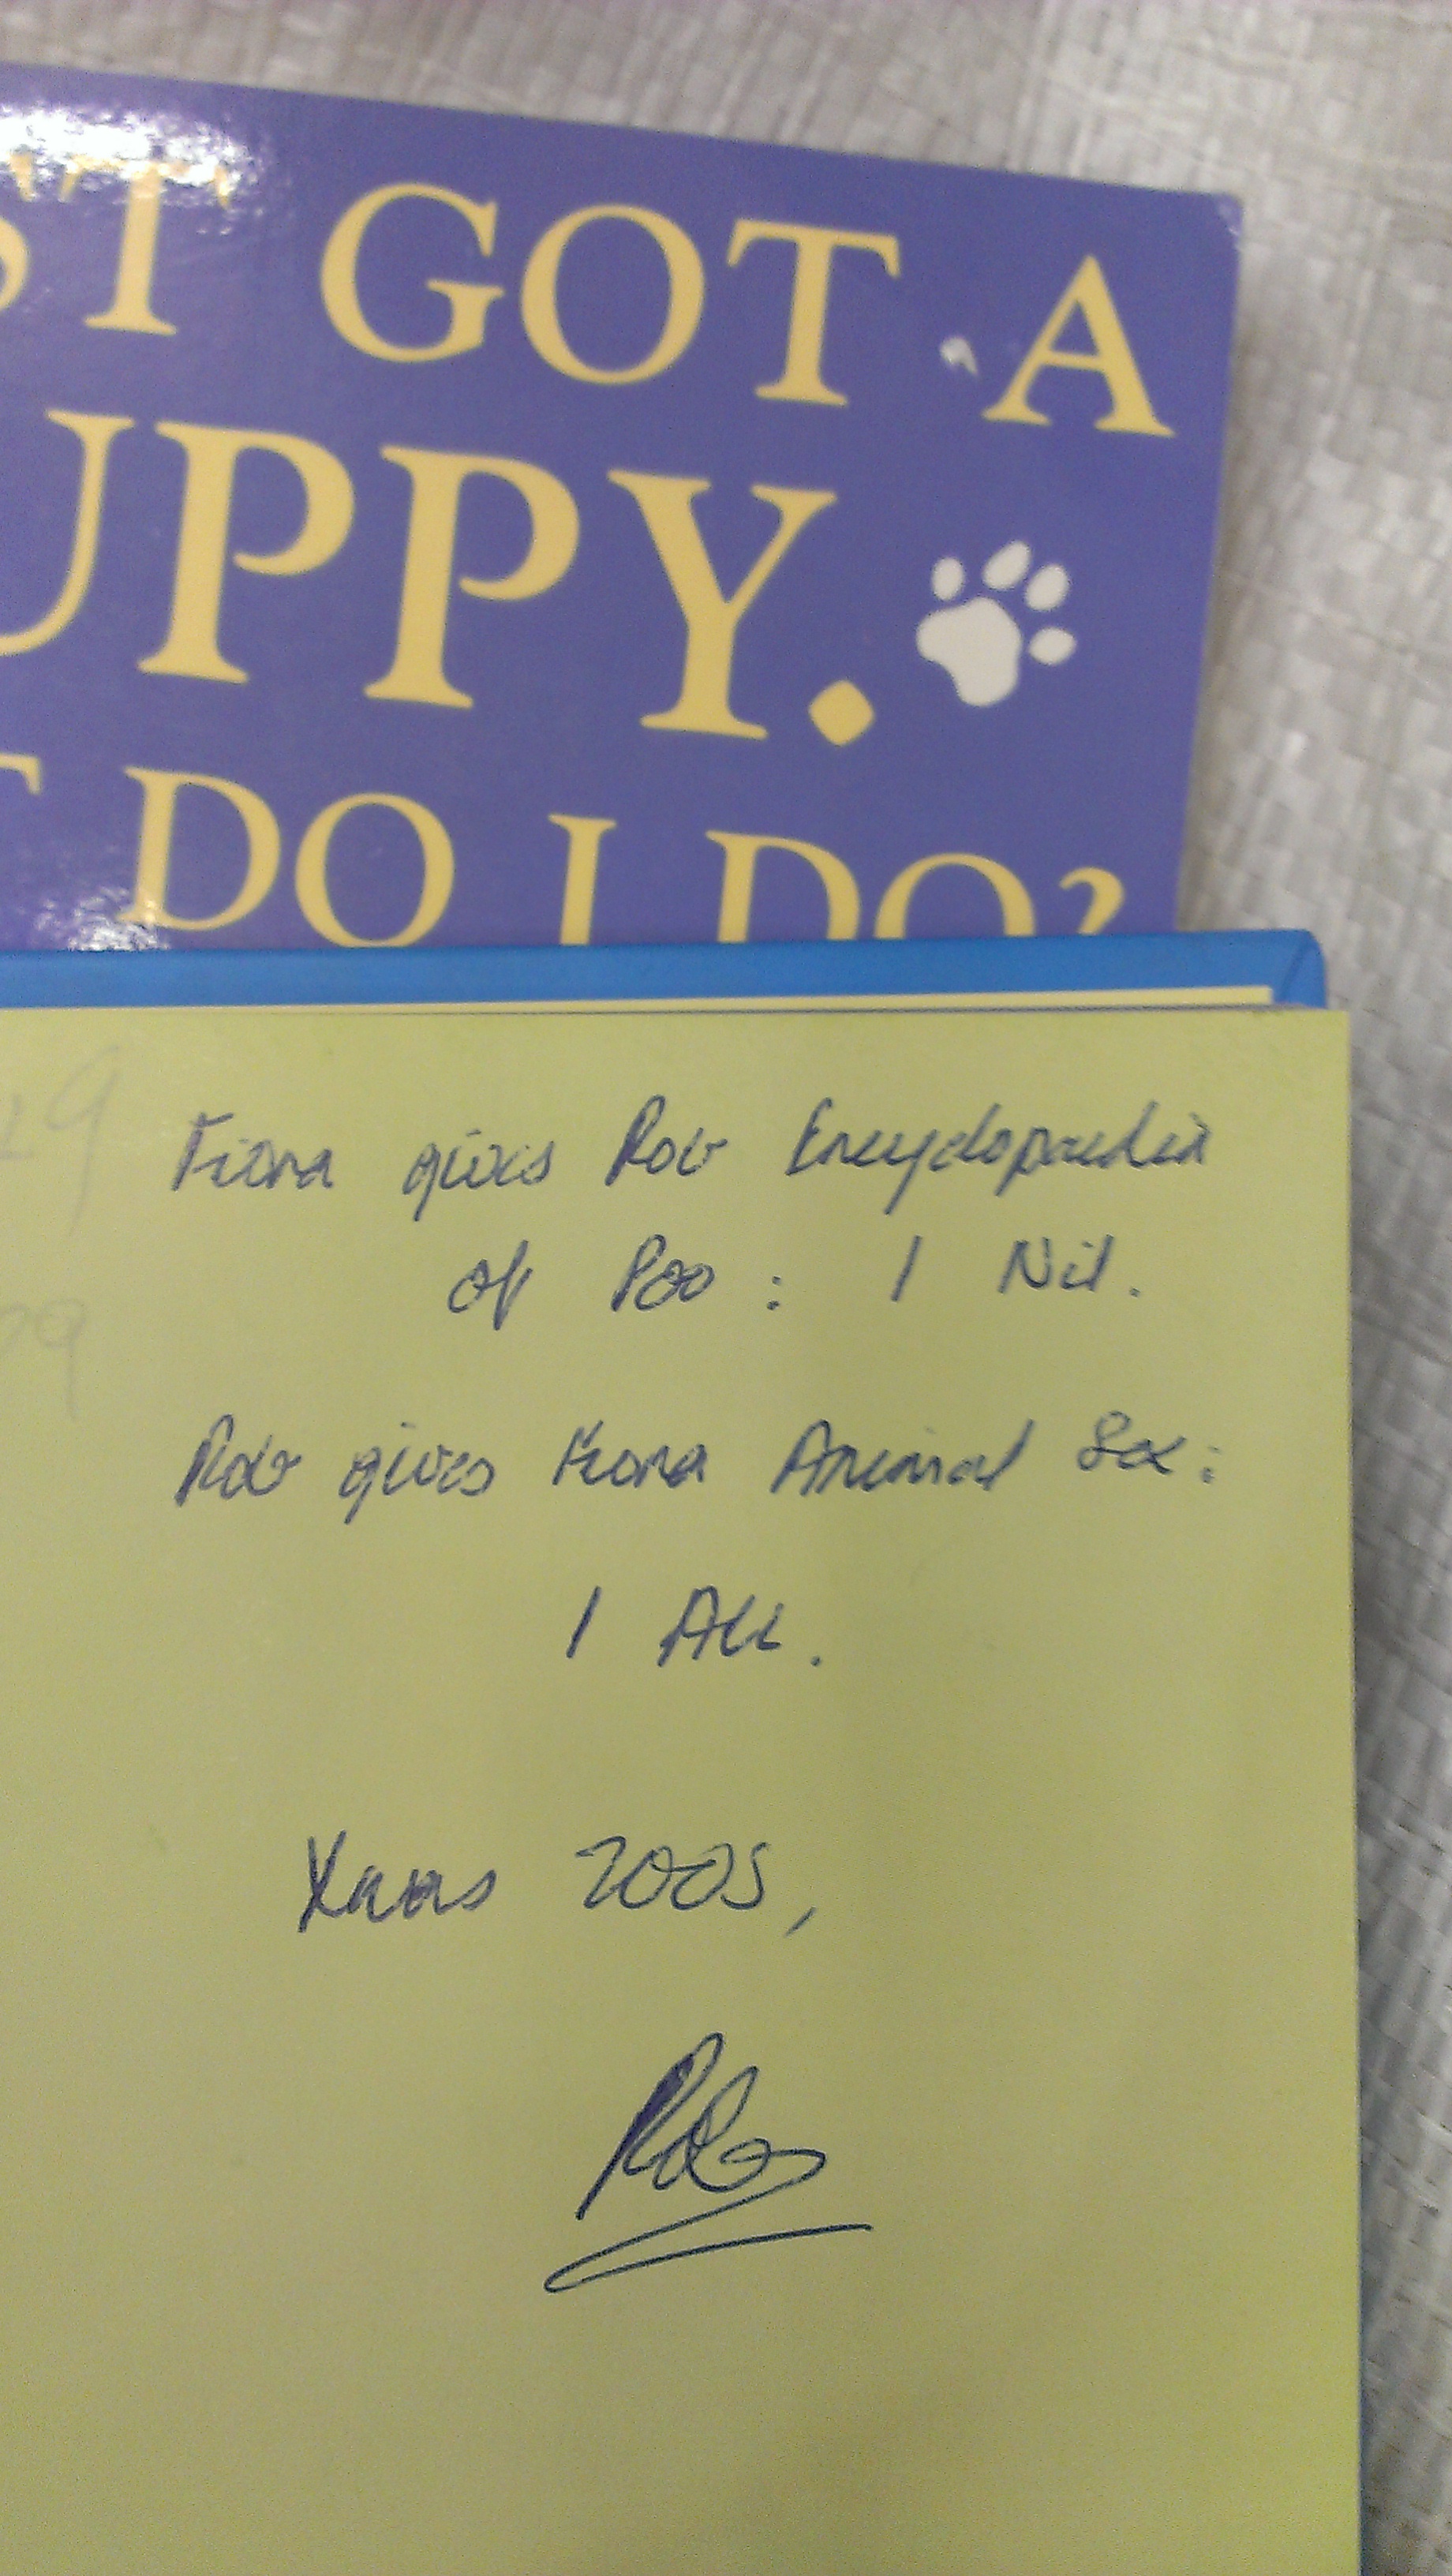 ST GOT A
UPPY.
T DO I DO?
Fiona gives Rob Encyclopaedia
of Poo : 1 Nil.
Rob gives Fiona Animal Sex:
1 All.
Xmas 2005,
Rob